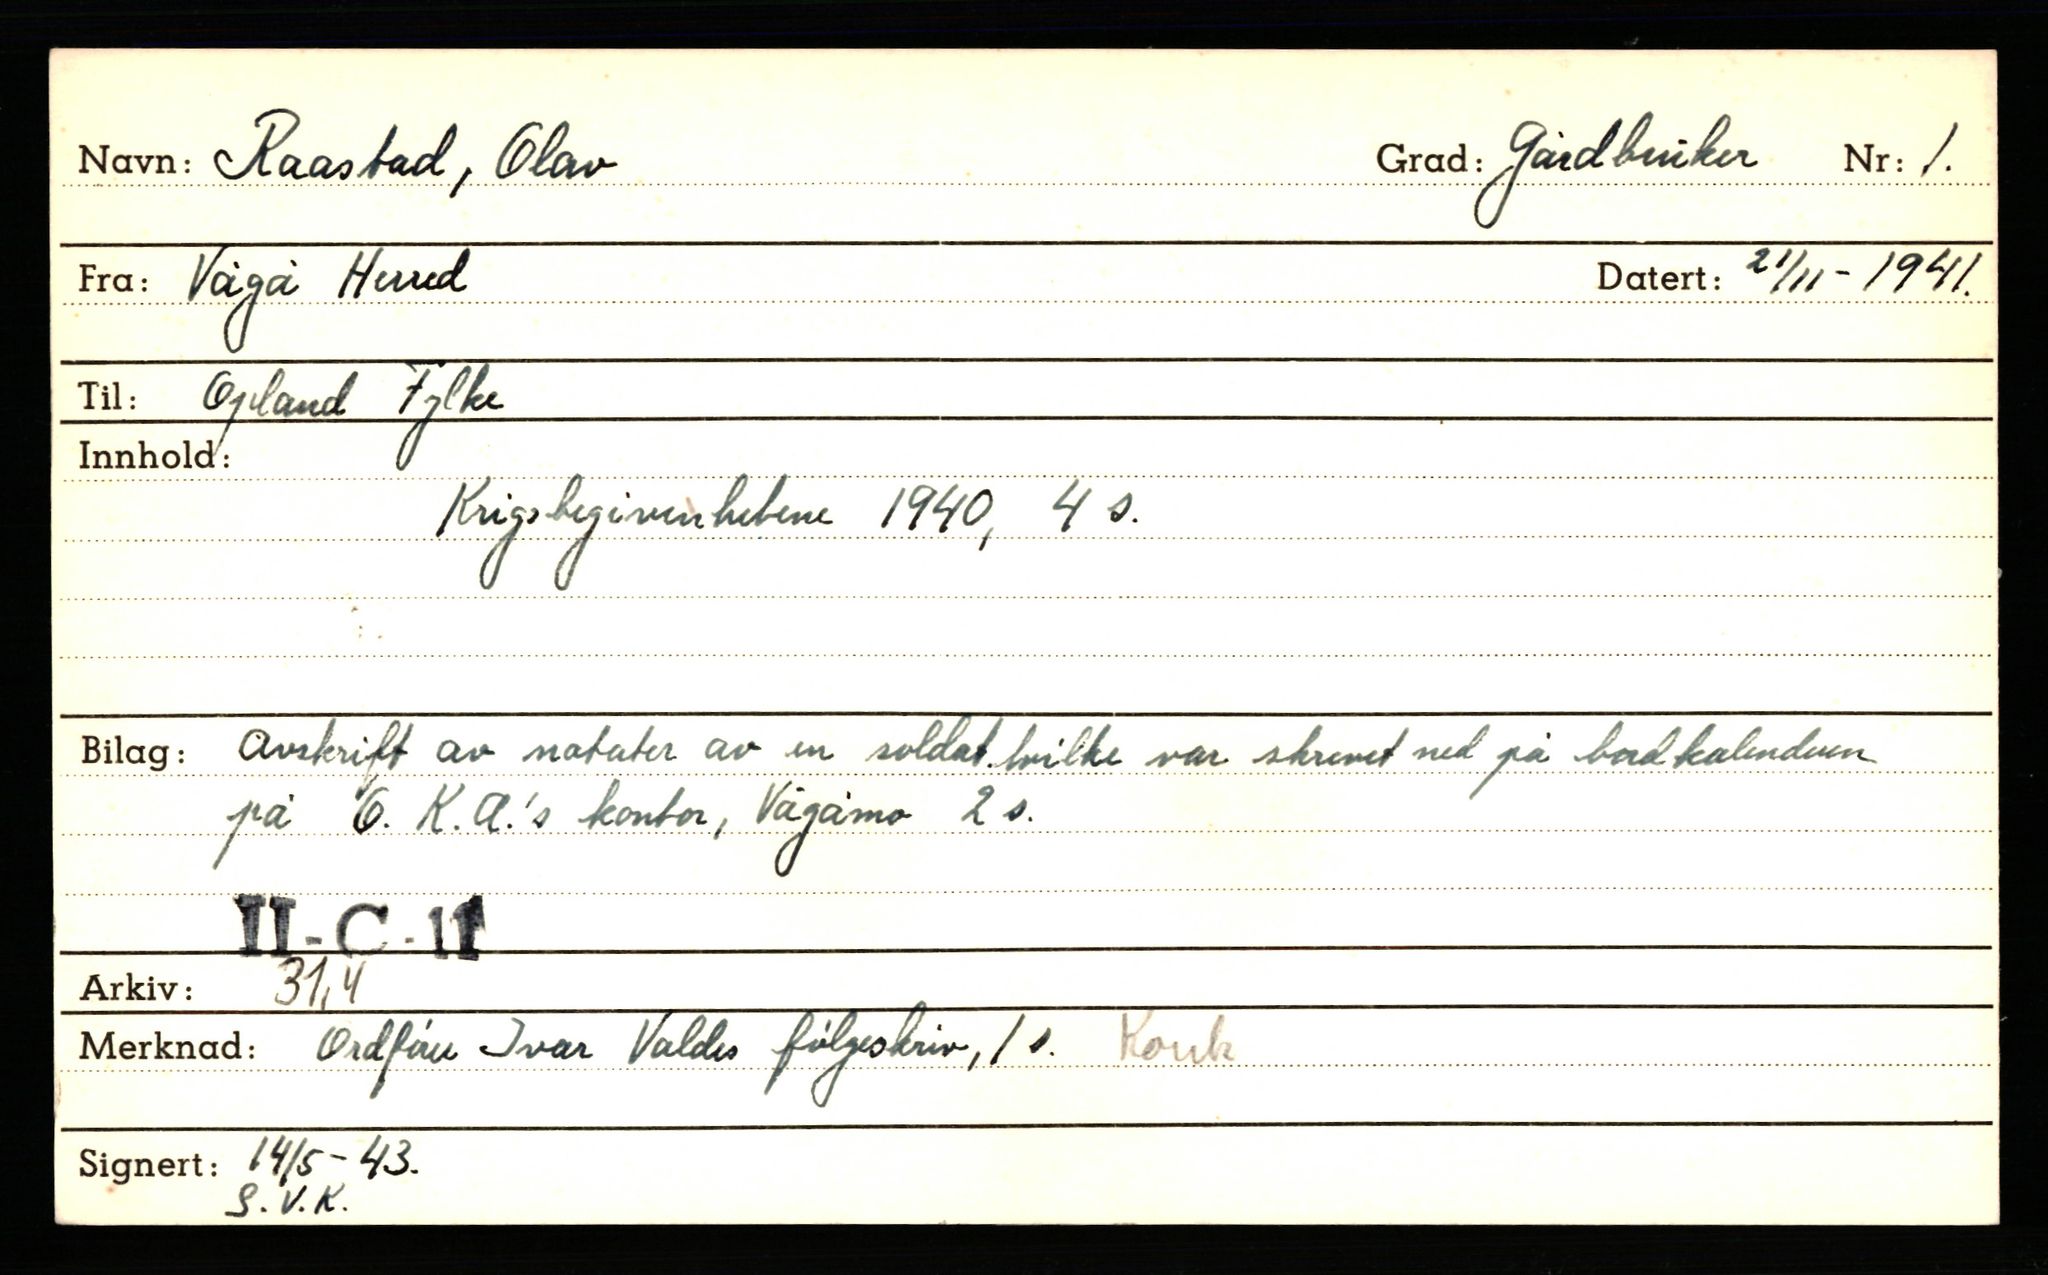 Navn: Raastad, Olav Grad: Gårdbruker Nr: 1.
Fra: Vågå Herred Datert: 21/11-1941.
Til: Opland Fylke
Innhold:
Krigsbegivenhetene 1940, 4 s.
Bilag: Avskrift av notater av en soldat. hvilke var skrevet ned på bordkalenderen
på O. K. A.'s kontor, Vågåmo 2 s.
II-C-11
Arkiv: 31,4
Merknad: Ordfører Ivar Valdes følgeskriv, 1 s. Konk
Signert: 14/5-43.
S.V.K.